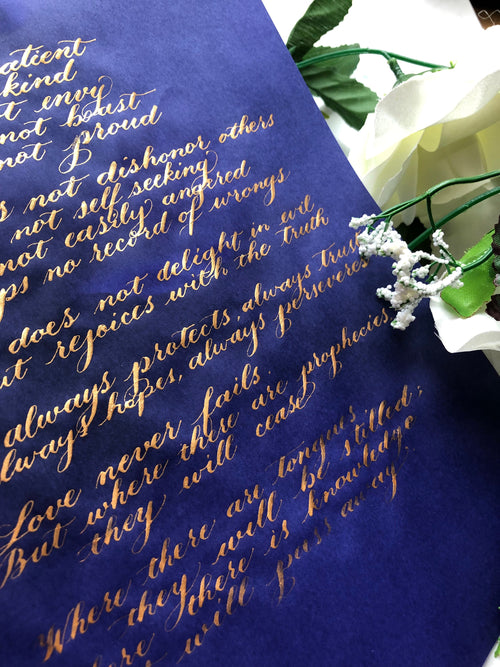 atient
kind
t envy
not boast
not proud
s not dishonor others
not self seeking
not easily angered
ps no record of wrongs
does not delight in evil
ut rejoices with the truth
always protects, always trust
lways hopes, always perseveres
Love never fails.
But where there are prophecies
they will cease
Where there are tongues,
they will be stilled;
there is knowledge
will pass away.